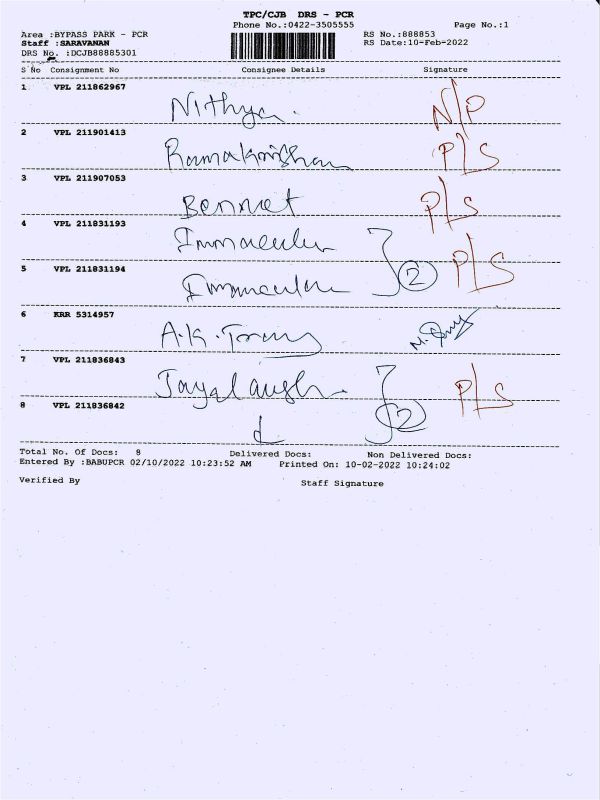 TPC/CJB DRS - PCR
Phone No.:0422-3505555 Page No.:1
Area :BYPASS PARK - PCR RS No.:888853
Staff :SARAVANAN RS Date:10-Feb-2022
DRS No. :DCJB88885301
S No Consignment No Consignee Details Signature
1 VPL 211862967 Nithya. N/P
2 VPL 211901413 Ramakrishnan P/S
3 VPL 211907053 Bennet P/S
4 VPL 211831193
5 VPL 211831194 2 P/S
6 KRR 5314957 A.K.
7 VPL 211836843 P/S
8 VPL 211836842 2
Total No. Of Docs: 8 Delivered Docs: Non Delivered Docs:
Entered By :BABUPCR 02/10/2022 10:23:52 AM Printed On: 10-02-2022 10:24:02
Verified By Staff Signature